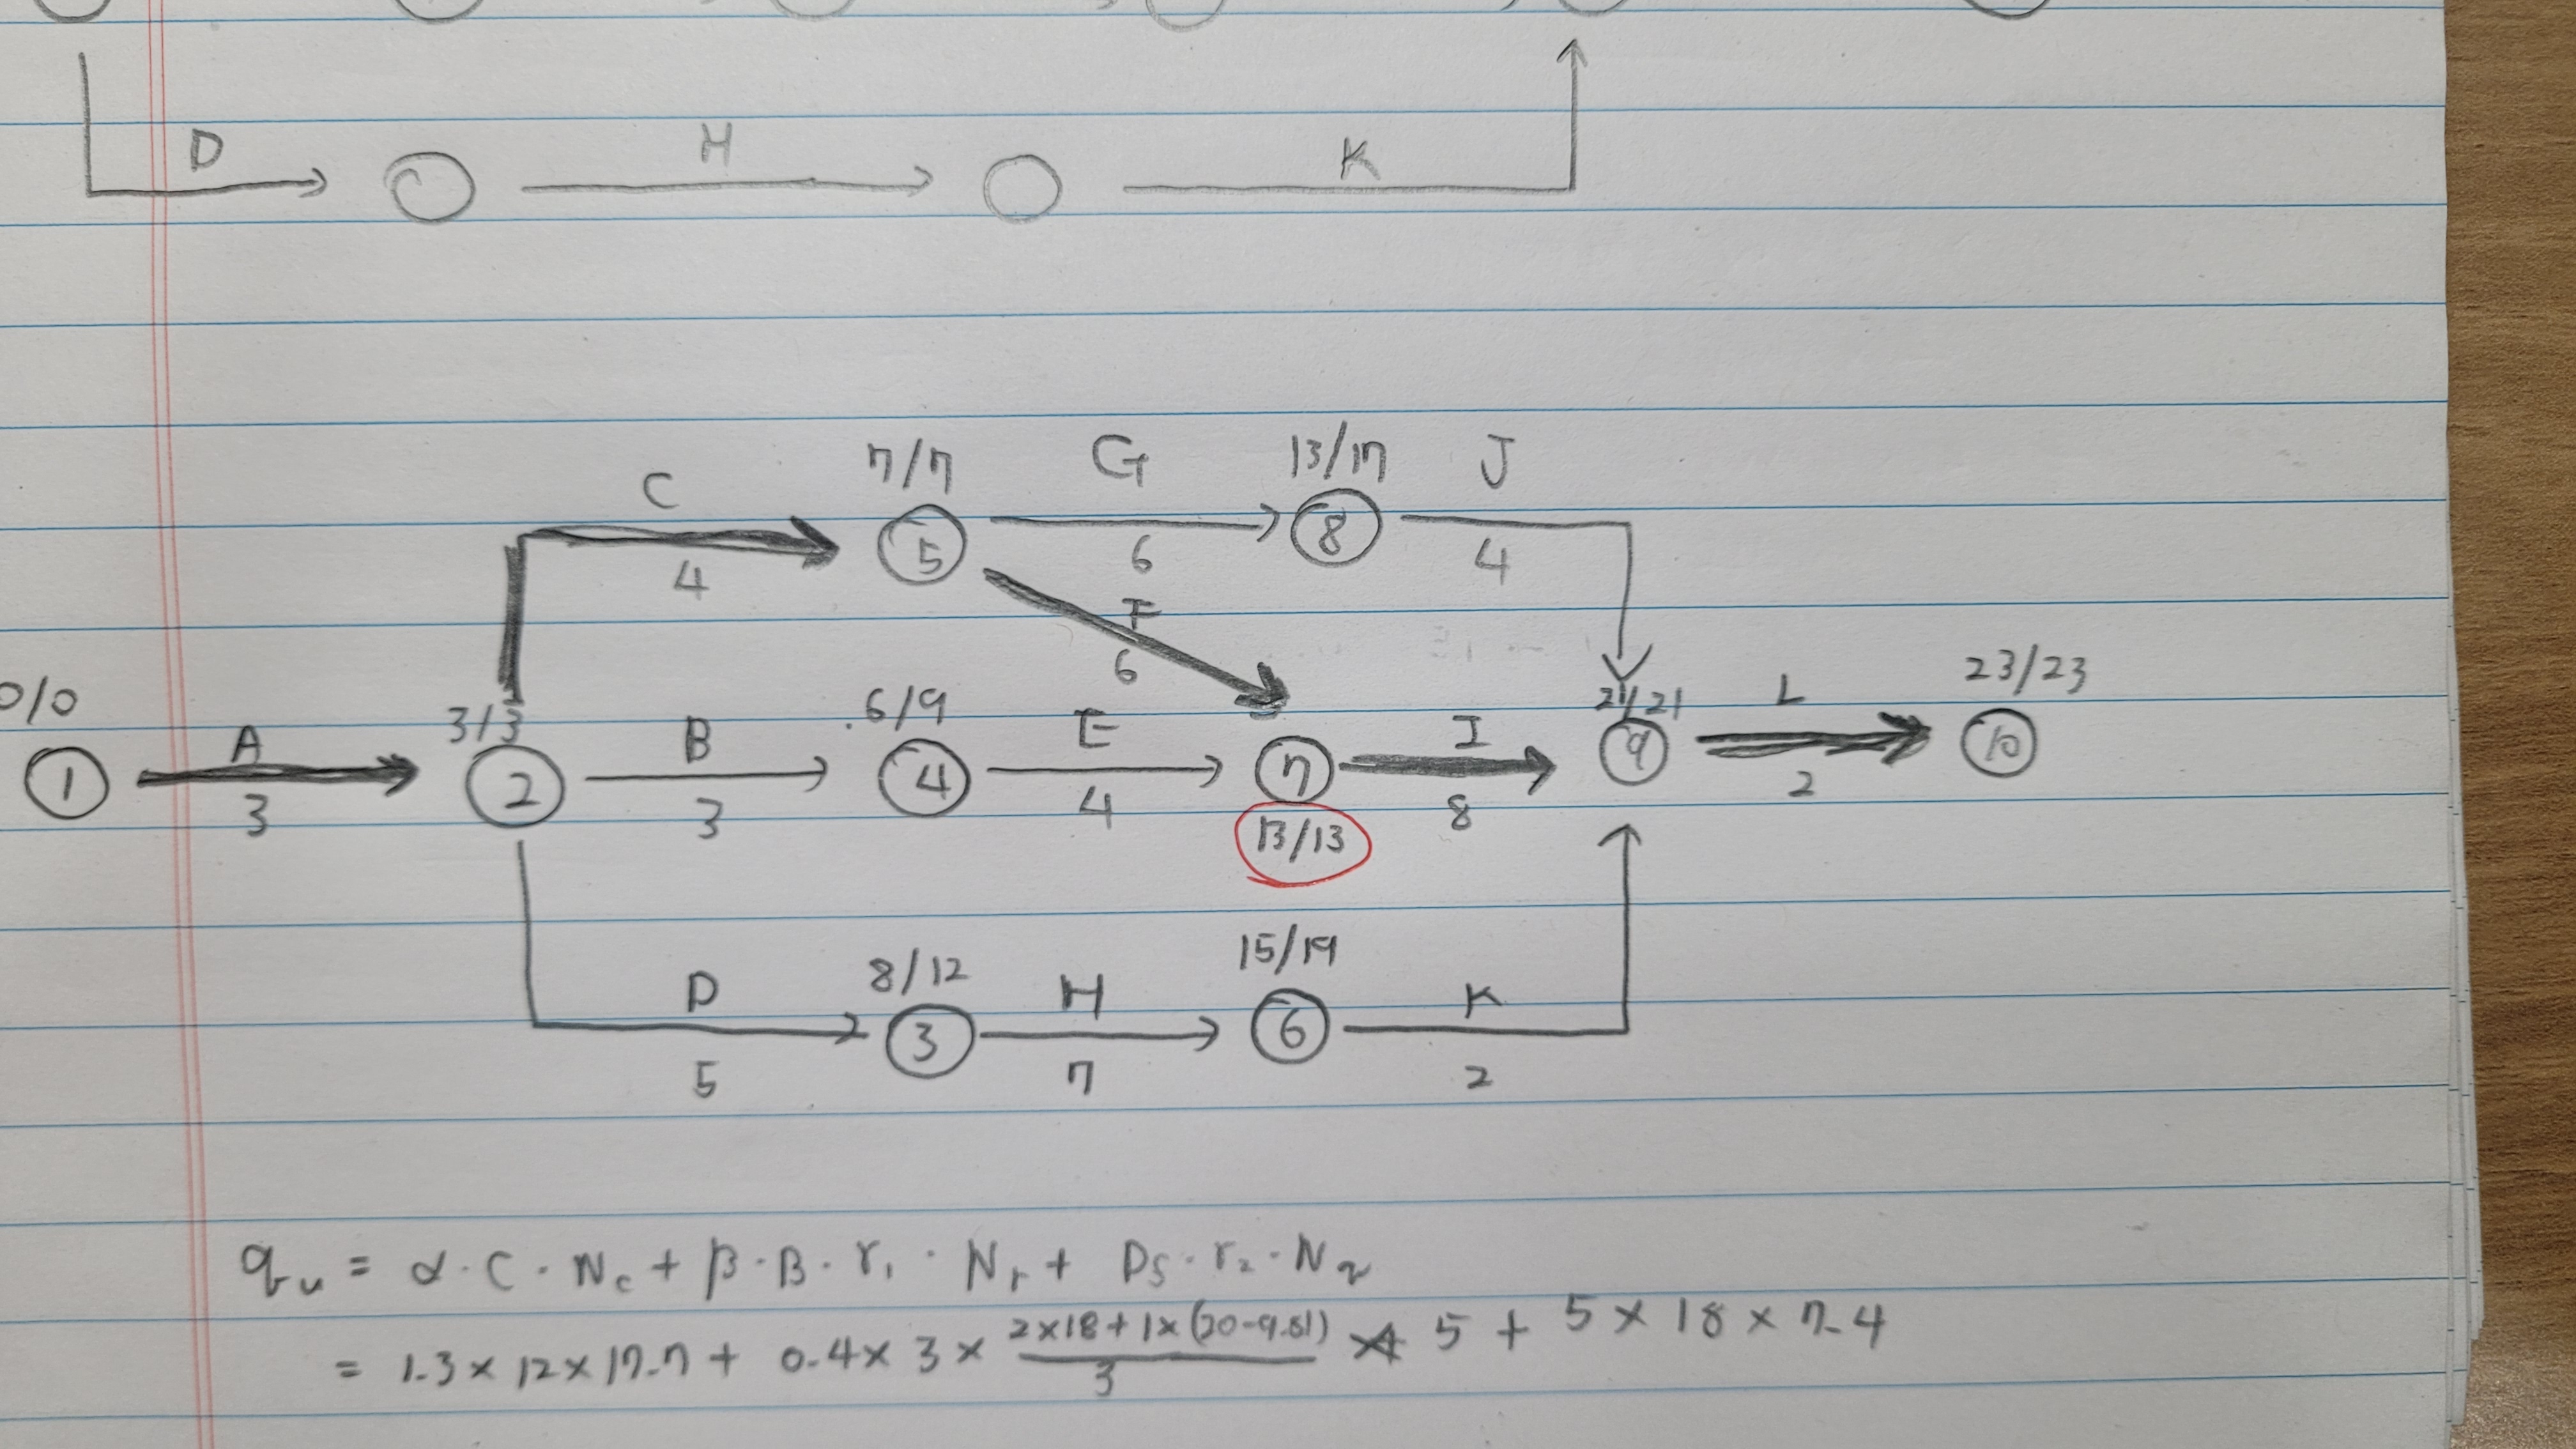 D H K
C 7/7 G 13/17 J
5 8
4 6 4
F
6
0/0 3/3 6/9 21/21 23/23
A B E I L
1 2 4 7 9 10
3 3 4 8 2
13/13
8/12 15/19
D H K
3 6
5 7 2
qu = α·C·Nc + β·B·r₁·Nr + Df·r₂·Nq
= 1.3 × 12 × 17.7 + 0.4 × 3 × (2×18 + 1×(20-9.81))/3 × 5 + 5 × 18 × 7.4